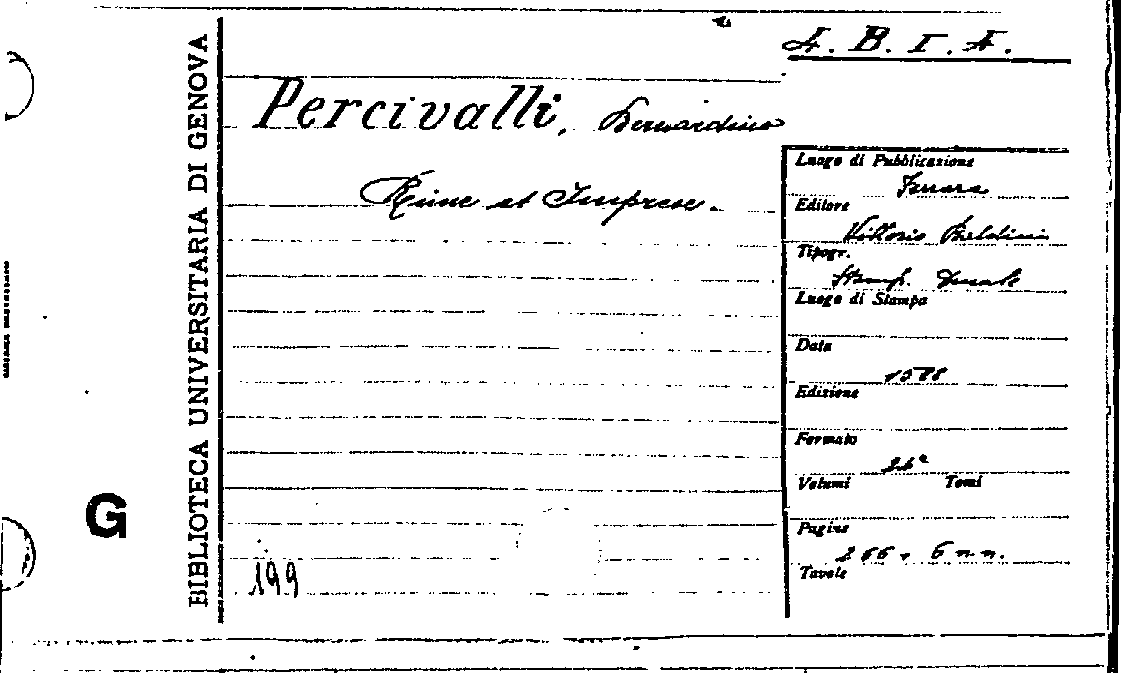 4. B. I. 4.
BIBLIOTECA UNIVERSITARIA DI GENOVA
Percivalli, Bernardino
Rime et Imprese.
Luogo di Pubblicazione
Ferrara
Editore
Vittorio Baldini
Tipogr.
Stamp. Ducale
Luogo di Stampa
Data
1588
Edizione
Formato
Volumi Tomi
Pagine
266, 6 n. n.
Tavole
G
199